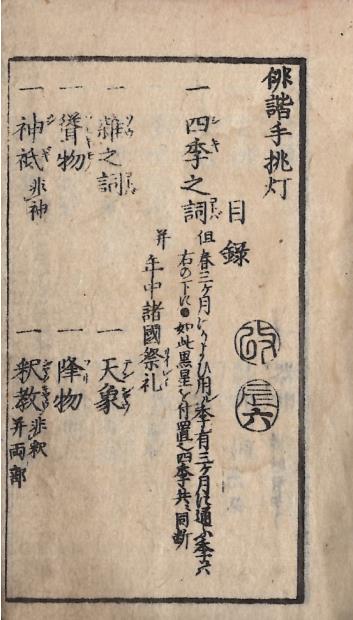 俳諧手挑灯
目録
一 四季之詞 但春三ヶ月にわたり用ル季有三ヶ月に通ふ季六
右の下に●如此黒星を付置く四季共ニ同断
并 年中諸國祭礼
一 雑之詞
一 天象
一 聳物
一 降物
一 神祇 非神
一 釈教 非釈 并両部